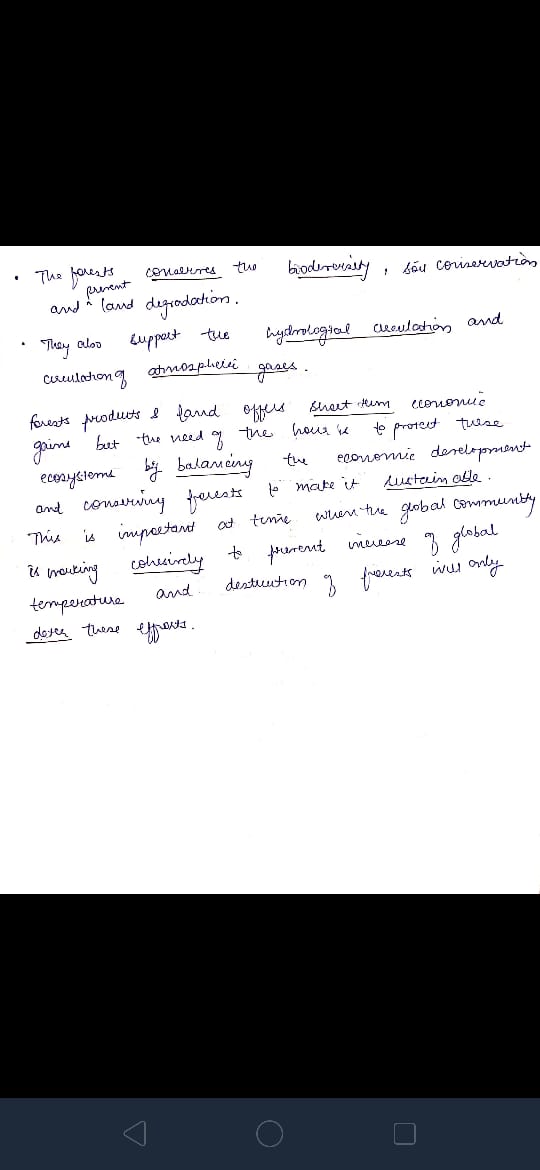 • The forests conserves the biodiversity, soil conservation
and ^ prevent land degradation.
• They also support the hydrological circulation and
circulation of atmospheric gases.
forests products & land offers short term economic
gains but the need of the hour is to protect these
ecosystems by balancing the economic development
and conserving forests to make it sustainable.
This is important at time when the global community
is working cohesively to prevent increase of global
temperature and destruction of forests will only
deter these efforts.